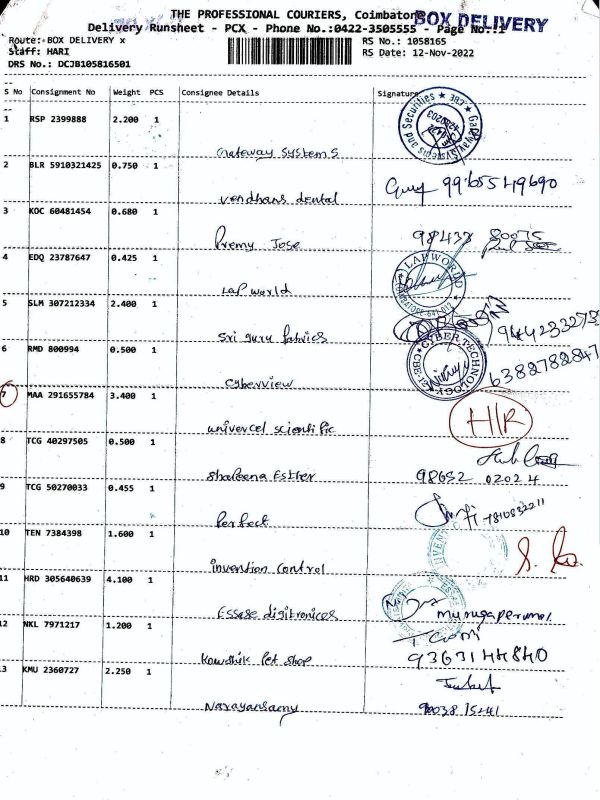 THE PROFESSIONAL COURIERS, Coimbatore
BOX DELIVERY
Delivery Runsheet - PCX - Phone No.:0422-3505555 - Page No.:1
Route: BOX DELIVERY x
RS No.: 1058165
Staff: HARI
RS Date: 12-Nov-2022
DRS No.: DCJB105816501
S No Consignment No Weight PCS Consignee Details Signature
1 RSP 2399888 2.200 1
Gateway Systems
2 BLR 5910321425 0.750 1
vendhans dental 9965549690
3 KOC 60481454 0.680 1
Premy Jose 98438 80075
4 EDQ 23787647 0.425 1
Lap world
LAP WORLD
5 SLM 307212334 2.400 1
Sri guru fabrics
6 RMD 800994 0.500 1
CYBER TECHNOLOGY
Cyberview 6382782847
7 MAA 291655784 3.400 1
univercel scientific H/R
8 TCG 40297505 0.500 1
Shaleena Esther 98652 02024
9 TCG 50270033 0.455 1
Perfect 7810832211
10 TEN 7384398 1.600 1
invention control
11 HRD 305640639 4.100 1
Essae digitronices Murugaperumal
12 NKL 7971217 1.200 1
Kowshik Pet shop 9363144840
13 KMU 2360727 2.250 1
Narayansamy